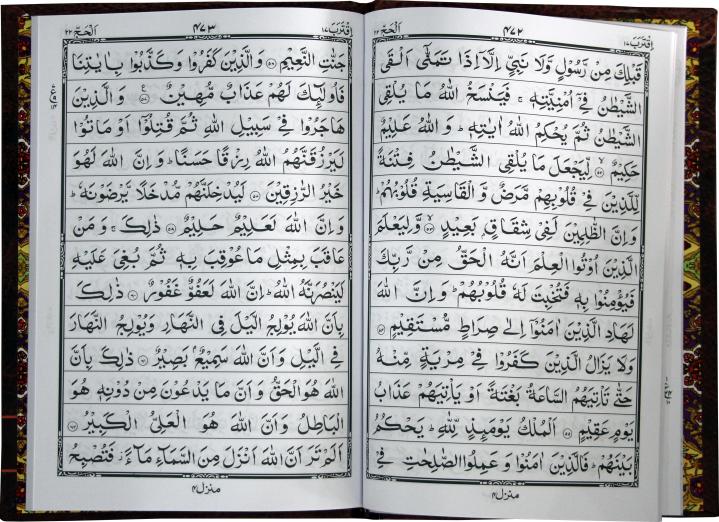 اقترب ١٧
٤٧٢
الحج ٢٢
قَبْلِكَ مِنْ رَّسُوْلٍ وَّلَا نَبِيٍّ اِلَّاۤ اِذَا تَمَنّٰۤى اَلْقَى
الشَّيْطٰنُ فِيْۤ اُمْنِيَّتِهٖ ۚ فَيَنْسَخُ اللّٰهُ مَا يُلْقِى
الشَّيْطٰنُ ثُمَّ يُحْكِمُ اللّٰهُ اٰيٰتِهٖ ؕ وَاللّٰهُ عَلِيْمٌ
حَكِيْمٌ ۙ﴿۵۲﴾ لِّيَجْعَلَ مَا يُلْقِى الشَّيْطٰنُ فِتْنَةً
لِّلَّذِيْنَ فِيْ قُلُوْبِهِمْ مَّرَضٌ وَّالْقَاسِيَةِ قُلُوْبُهُمْ ؕ
وَاِنَّ الظّٰلِمِيْنَ لَفِيْ شِقَاقٍۭ بَعِيْدٍ ۙ﴿۵۳﴾ وَّلِيَعْلَمَ
الَّذِيْنَ اُوْتُوا الْعِلْمَ اَنَّهُ الْحَقُّ مِنْ رَّبِّكَ
فَيُؤْمِنُوْا بِهٖ فَتُخْبِتَ لَهٗ قُلُوْبُهُمْ ؕ وَاِنَّ اللّٰهَ
لَهَادِ الَّذِيْنَ اٰمَنُوْۤا اِلٰى صِرَاطٍ مُّسْتَقِيْمٍ ﴿۵۴﴾
وَلَا يَزَالُ الَّذِيْنَ كَفَرُوْا فِيْ مِرْيَةٍ مِّنْهُ
حَتّٰى تَاْتِيَهُمُ السَّاعَةُ بَغْتَةً اَوْ يَاْتِيَهُمْ عَذَابُ
يَوْمٍ عَقِيْمٍ ﴿۵۵﴾ اَلْمُلْكُ يَوْمَئِذٍ لِّلّٰهِ ؕ يَحْكُمُ
بَيْنَهُمْ ؕ فَالَّذِيْنَ اٰمَنُوْا وَعَمِلُوا الصّٰلِحٰتِ فِيْ
منزل ٤
اقترب ١٧
٤٧٣
الحج ٢٢
جَنّٰتِ النَّعِيْمِ ﴿۵۶﴾ وَالَّذِيْنَ كَفَرُوْا وَكَذَّبُوْا بِاٰيٰتِنَا
فَاُولٰٓئِكَ لَهُمْ عَذَابٌ مُّهِيْنٌ ﴿۵۷﴾ وَالَّذِيْنَ
هَاجَرُوْا فِيْ سَبِيْلِ اللّٰهِ ثُمَّ قُتِلُوْۤا اَوْ مَاتُوْا
لَيَرْزُقَنَّهُمُ اللّٰهُ رِزْقًا حَسَنًا ؕ وَاِنَّ اللّٰهَ لَهُوَ
خَيْرُ الرّٰزِقِيْنَ ﴿۵۸﴾ لَيُدْخِلَنَّهُمْ مُّدْخَلًا يَّرْضَوْنَهٗ ؕ
وَاِنَّ اللّٰهَ لَعَلِيْمٌ حَلِيْمٌ ﴿۵۹﴾ ذٰلِكَ ۚ وَمَنْ
عَاقَبَ بِمِثْلِ مَا عُوْقِبَ بِهٖ ثُمَّ بُغِيَ عَلَيْهِ
لَيَنْصُرَنَّهُ اللّٰهُ ؕ اِنَّ اللّٰهَ لَعَفُوٌّ غَفُوْرٌ ﴿۶۰﴾ ذٰلِكَ
بِاَنَّ اللّٰهَ يُوْلِجُ الَّيْلَ فِي النَّهَارِ وَيُوْلِجُ النَّهَارَ
فِي الَّيْلِ وَاَنَّ اللّٰهَ سَمِيْعٌۢ بَصِيْرٌ ﴿۶۱﴾ ذٰلِكَ بِاَنَّ
اللّٰهَ هُوَ الْحَقُّ وَاَنَّ مَا يَدْعُوْنَ مِنْ دُوْنِهٖ هُوَ
الْبَاطِلُ وَاَنَّ اللّٰهَ هُوَ الْعَلِيُّ الْكَبِيْرُ ﴿۶۲﴾
اَلَمْ تَرَ اَنَّ اللّٰهَ اَنْزَلَ مِنَ السَّمَآءِ مَآءً ۫ فَتُصْبِحُ
منزل ٤